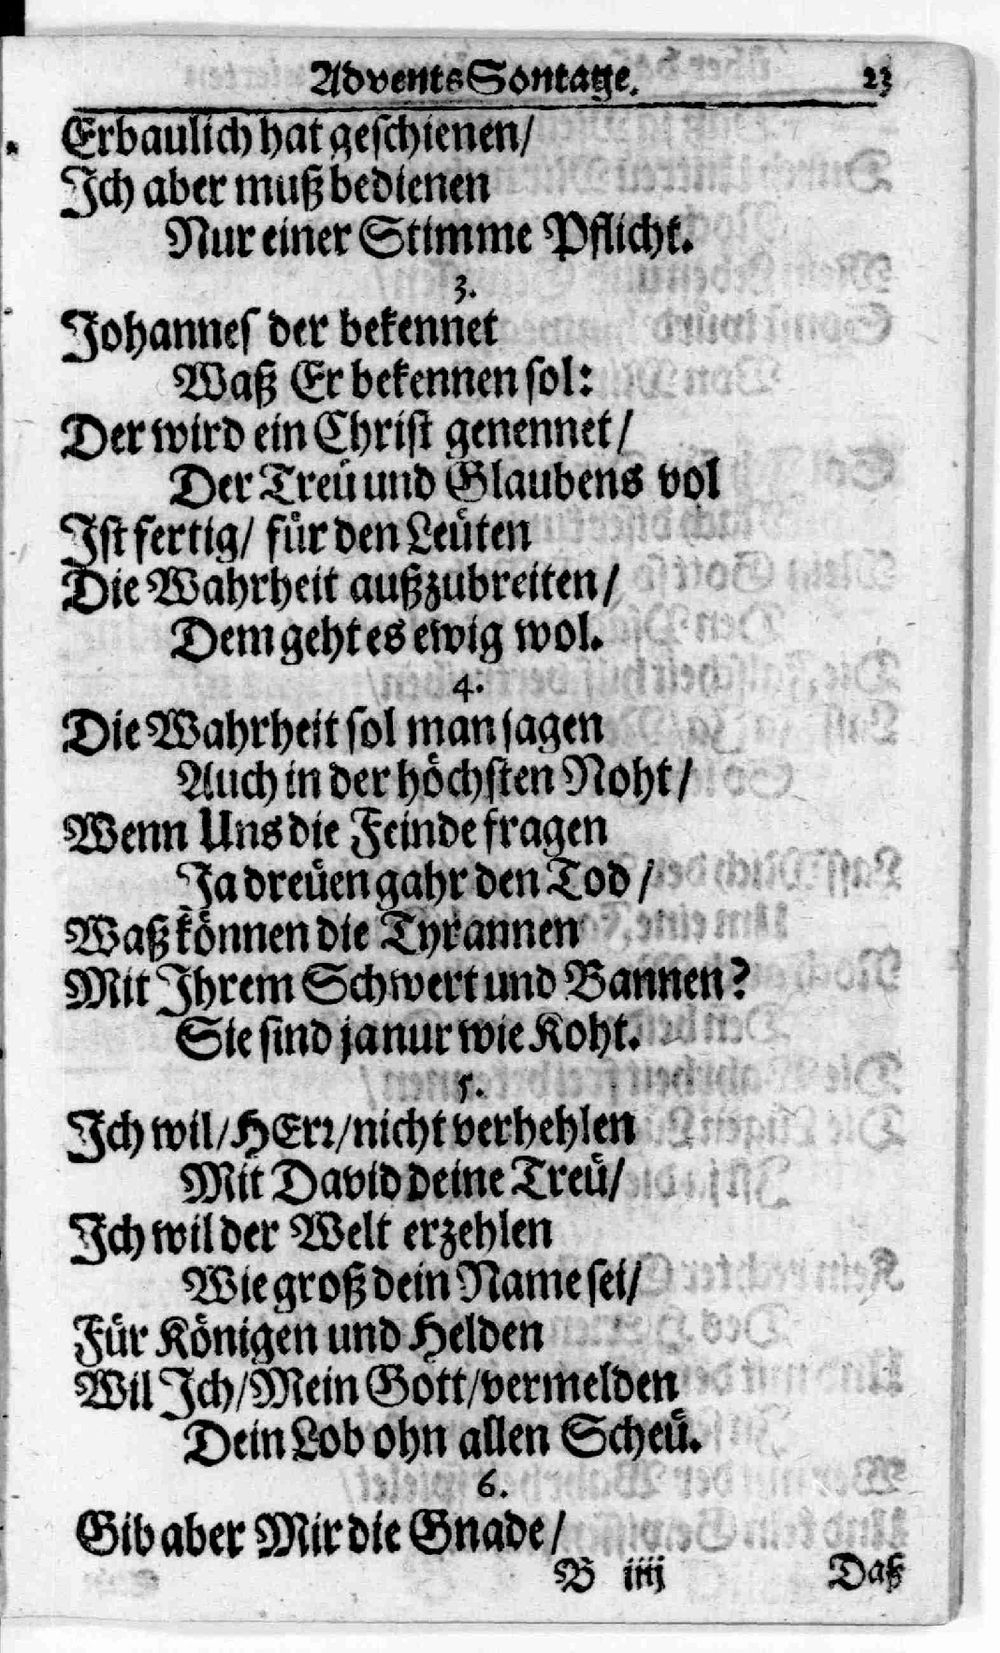 Advents Sontage. 23
Erbaulich hat geschienen/
Ich aber muß bedienen
Nur einer Stimme Pflicht.
3.
Johannes der bekennet
Waß Er bekennen sol:
Der wird ein Christ genennet/
Der Treü und Glaubens vol
Ist fertig/ für den Leüten
Die Wahrheit außzubreiten/
Dem geht es ewig wol.
4.
Die Wahrheit sol man sagen
Auch in der höchsten Noht/
Wenn Uns die Feinde fragen
Ja dreüen gahr den Tod/
Waß können die Tyrannen
Mit Ihrem Schwert und Bannen?
Sie sind ja nur wie Koht.
5.
Ich wil/HErr/nicht verhehlen
Mit David deine Treü/
Ich wil der Welt erzehlen
Wie groß dein Name sei/
Für Königen und Helden
Wil Ich/Mein Gott/vermelden
Dein Lob ohn allen Scheü.
6.
Gib aber Mir die Gnade/
B iiij Daß